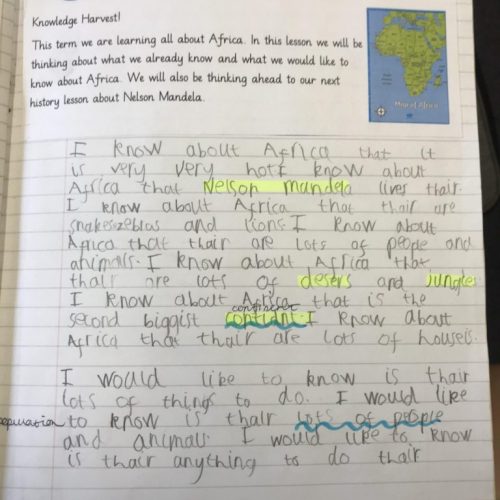 Knowledge Harvest!
This term we are learning all about Africa. In this lesson we will be
thinking about what we already know and what we would like to
know about Africa. We will also be thinking ahead to our next
history lesson about Nelson Mandela.
Map of Africa
I know about Africa that it
is very very hot I know about
Africa that Nelson mandela lives thair.
I know about Africa that thair are
snakes zebras and lions I know about
Africa that thair are lots of people and
animals. I know about Africa that
thair are lots of desers and jungles
I know about Africa that is the
continent
second biggist contident. I know about
Africa that thair are lots of houseis.
I would like to know is thair
lots of things to do. I would like
population to know is thair lots of people
and animals. I would like to know
is thair anything to do thair